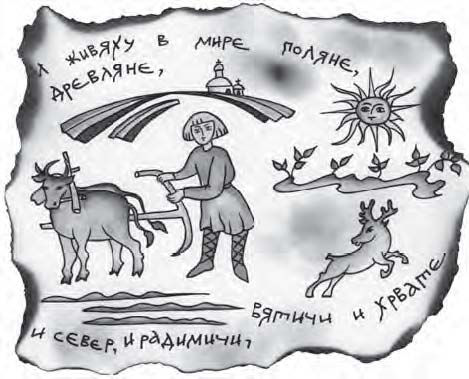 И живяху в мире поляне,
древляне,
и север, и радимичи,
вятичи и хрвате